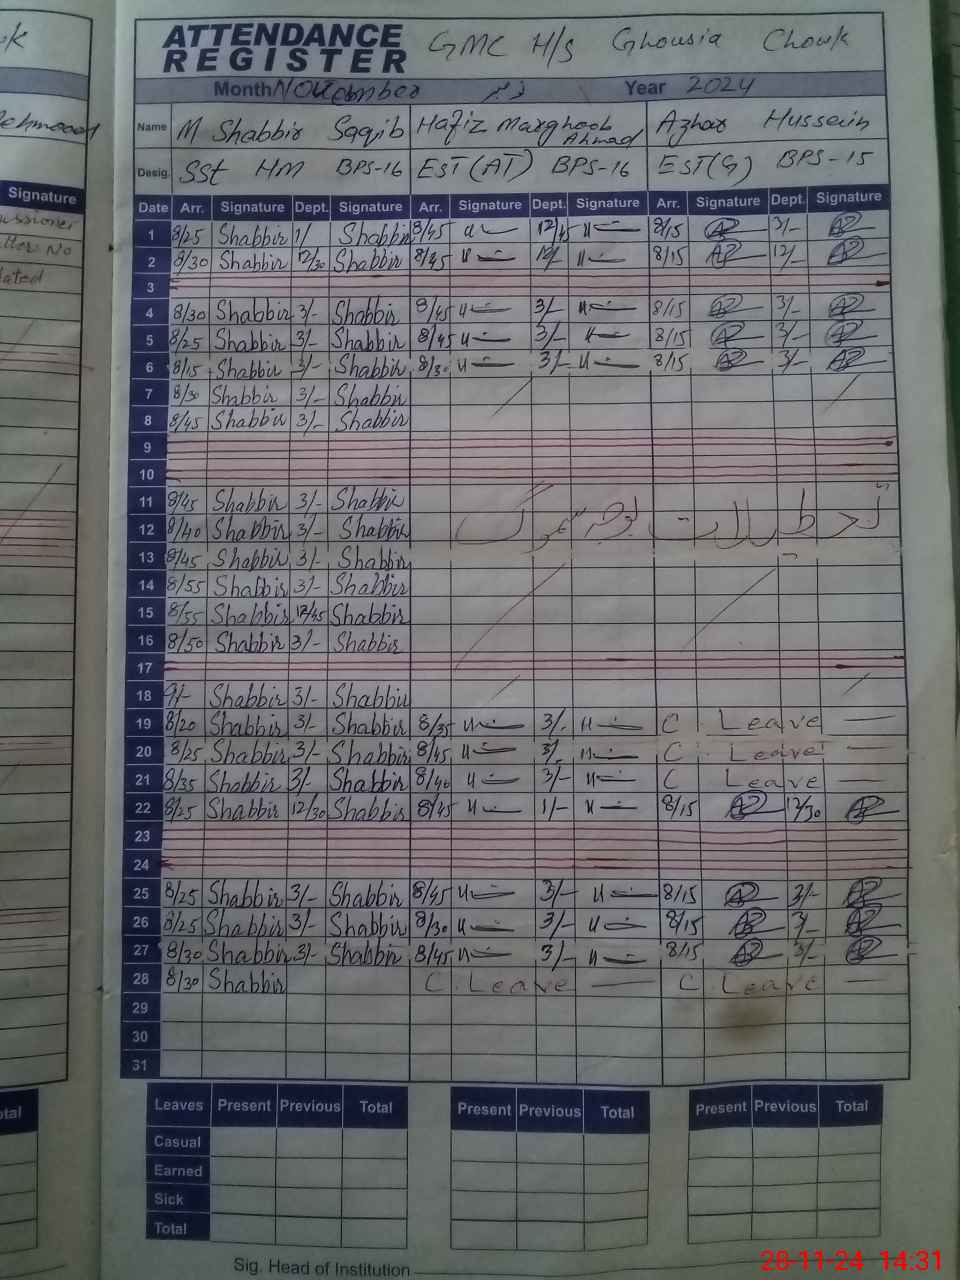 ATTENDANCE REGISTER GMC H/S Ghousia Chowk
Month November نومبر Year 2024
Name M Shabbir Saqib Hafiz Marghoob Ahmad Azhar Hussain
Desig. SSt HM BPS-16 EST(AT) BPS-16 EST(G) BPS-15
Date Arr. Signature Dept. Signature Arr. Signature Dept. Signature Arr. Signature Dept. Signature
1 8/25 Shabbir 1/ Shabbir 8/45 12/45 8/15 3/-
2 8/30 Shabbir 12/30 Shabbir 8/45 12/ 8/15 12/-
3
4 8/30 Shabbir 3/- Shabbir 8/45 3/- 8/15 3/-
5 8/25 Shabbir 3/- Shabbir 8/45 3/- 8/15 3/-
6 8/15 Shabbir 3/- Shabbir 8/30 3/- 8/15 3/-
7 8/30 Shabbir 3/- Shabbir
8 8/45 Shabbir 3/- Shabbir
9
10
11 8/45 Shabbir 3/- Shabbir
12 8/40 Shabbir 3/- Shabbir تعطیلات بوجہ سموگ
13 8/45 Shabbir 3/- Shabbir
14 8/55 Shabbir 3/- Shabbir
15 8/55 Shabbir 12/45 Shabbir
16 8/50 Shabbir 3/- Shabbir
17
18 9/- Shabbir 3/- Shabbir
19 8/20 Shabbir 3/- Shabbir 8/35 3/- C. Leave
20 8/25 Shabbir 3/- Shabbir 8/45 3/ C. Leave
21 8/35 Shabbir 3/- Shabbir 8/40 3/- C Leave
22 8/25 Shabbir 12/30 Shabbir 8/45 1/- 8/15 12/30
23
24
25 8/25 Shabbir 3/- Shabbir 8/45 3/- 8/15 3/-
26 8/25 Shabbir 3/- Shabbir 8/30 3/- 8/15 3/-
27 8/30 Shabbir 3/- Shabbir 8/45 3/- 8/15 3/-
28 8/30 Shabbir C. Leave C. Leave
29
30
31
Leaves Present Previous Total Present Previous Total Present Previous Total
Casual
Earned
Sick
Total
Sig. Head of Institution
28-11-24 14:31
Signature